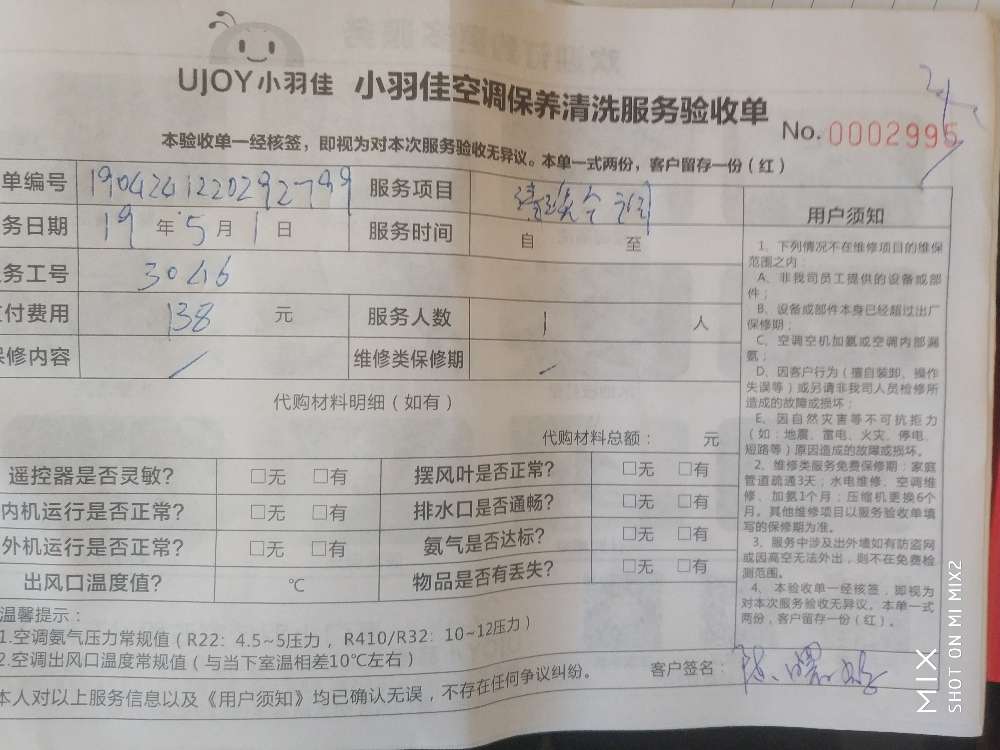 UJOY小羽佳 小羽佳空调保养清洗服务验收单
No. 0002995
本验收单一经核签，即视为对本次服务验收无异议。本单一式两份，客户留存一份（红）
单编号 1904241220292799 服务项目
务日期 19 年 5 月 1 日 服务时间 自 至
务工号 3046
付费用 138 元 服务人数 1 人
保修内容 / 维修类保修期 /
代购材料明细（如有）
代购材料总额： 元
遥控器是否灵敏? □无 □有 摆风叶是否正常? □无 □有
内机运行是否正常? □无 □有 排水口是否通畅? □无 □有
外机运行是否正常? □无 □有 氨气是否达标? □无 □有
出风口温度值? ℃ 物品是否有丢失? □无 □有
温馨提示：
1.空调氨气压力常规值（R22：4.5~5压力，R410/R32：10~12压力）
2.空调出风口温度常规值（与当下室温相差10℃左右）
客户签名：
本人对以上服务信息以及《用户须知》均已确认无误，不存在任何争议纠纷。
用户须知
1、下列情况不在维修项目的维保
范围之内：
A、非我司员工提供的设备或部
件；
B、设备或部件本身已经超过出厂
保修期；
C、空调空机加氨或空调内部漏
氨；
D、因客户行为（擅自装卸、操作
失误等）或另请非我司人员检修所
造成的故障或损坏；
E、因自然灾害等不可抗拒力
（如：地震、雷电、火灾、停电、
短路等）原因造成的故障或损坏。
2、维修类服务免费保修期：家庭
管道疏通3天；水电维修、空调维
修、加氨1个月；压缩机更换6个
月。其他维修项目以服务验收单填
写的保修期为准。
3、服务中涉及出外墙如有防盗网
或因高空无法外出，则不在免费检
测范围。
4、本验收单一经核签，即视为
对本次服务验收无异议。本单一式
两份，客户留存一份（红）。
MIX
SHOT ON MI MIX2